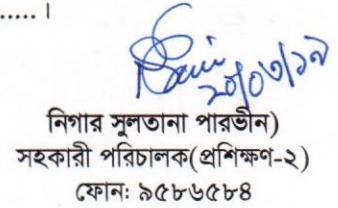 ..... ।
২০/০৩/১৯
নিগার সুলতানা পারভীন)
সহকারী পরিচালক(প্রশিক্ষণ-২)
ফোন: ৯৫৮৬৫৮৪